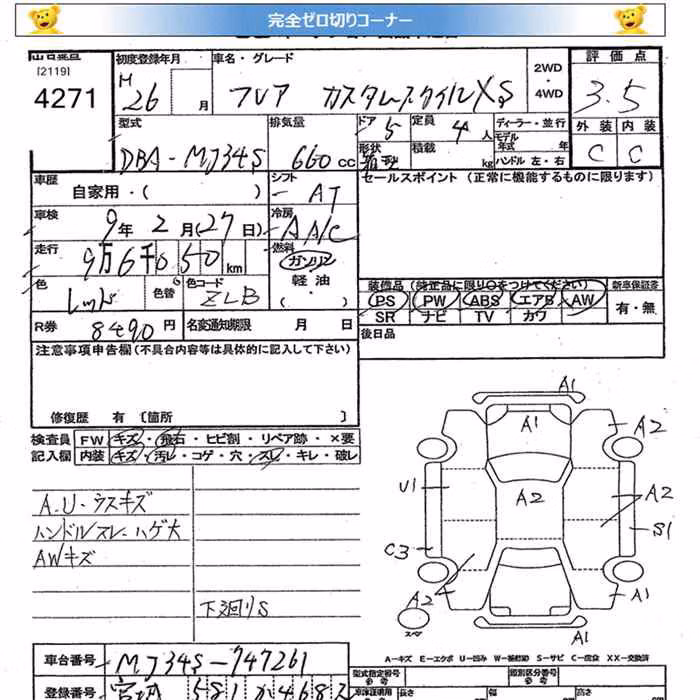 完全ゼロ切りコーナー
[2119]
4271
初度登録年月
H 26 月
車名・グレード
フレア カスタムスタイルXS
2WD
・4WD
評価点
3.5
型式
DBA-MJ34S
排気量
660 cc
ドア 5
定員 4 人
形状 箱型
積載 kg
ディーラー・並行
モデル年式 年
ハンドル 左・右
外装 内装
C C
車歴
自家用・( )
シフト
AT
セールスポイント (正常に機能するものに限ります)
車検
9年 2月(27日)
冷房
AA/C
走行
9万6千050 km
燃料
ガソリン
軽油
・( )
色
レッド
色替
色コード
ZLB
装備品 (純正品に限り○をつけてください)
新車保証書
PS PW ABS エアB AW
SR ナビ TV カワ
有・無
R券 8490円
名変通知期限 月 日
後日品
注意事項申告欄 (不具合内容等は具体的に記入して下さい)
修復歴 有 〔箇所 〕
検査員記入欄
FW キズ・飛石・ヒビ割・リペア跡・×要
内装 キズ・汚レ・コゲ・穴・スレ・キレ・破レ
A.U-ウスキズ
ハンドルスレ-ハゲ大
AWキズ
下廻りS
A1
A1
A2
U1
A2
A2
S1
C3
A2
A1
A1
スペア
A-キズ E-エクボ U-凹ミ S-サビ C-腐食 XX-交換済
車台番号 MJ34S-747261
登録番号
型式指定番号
類別区分番号
長さ 幅 高さ